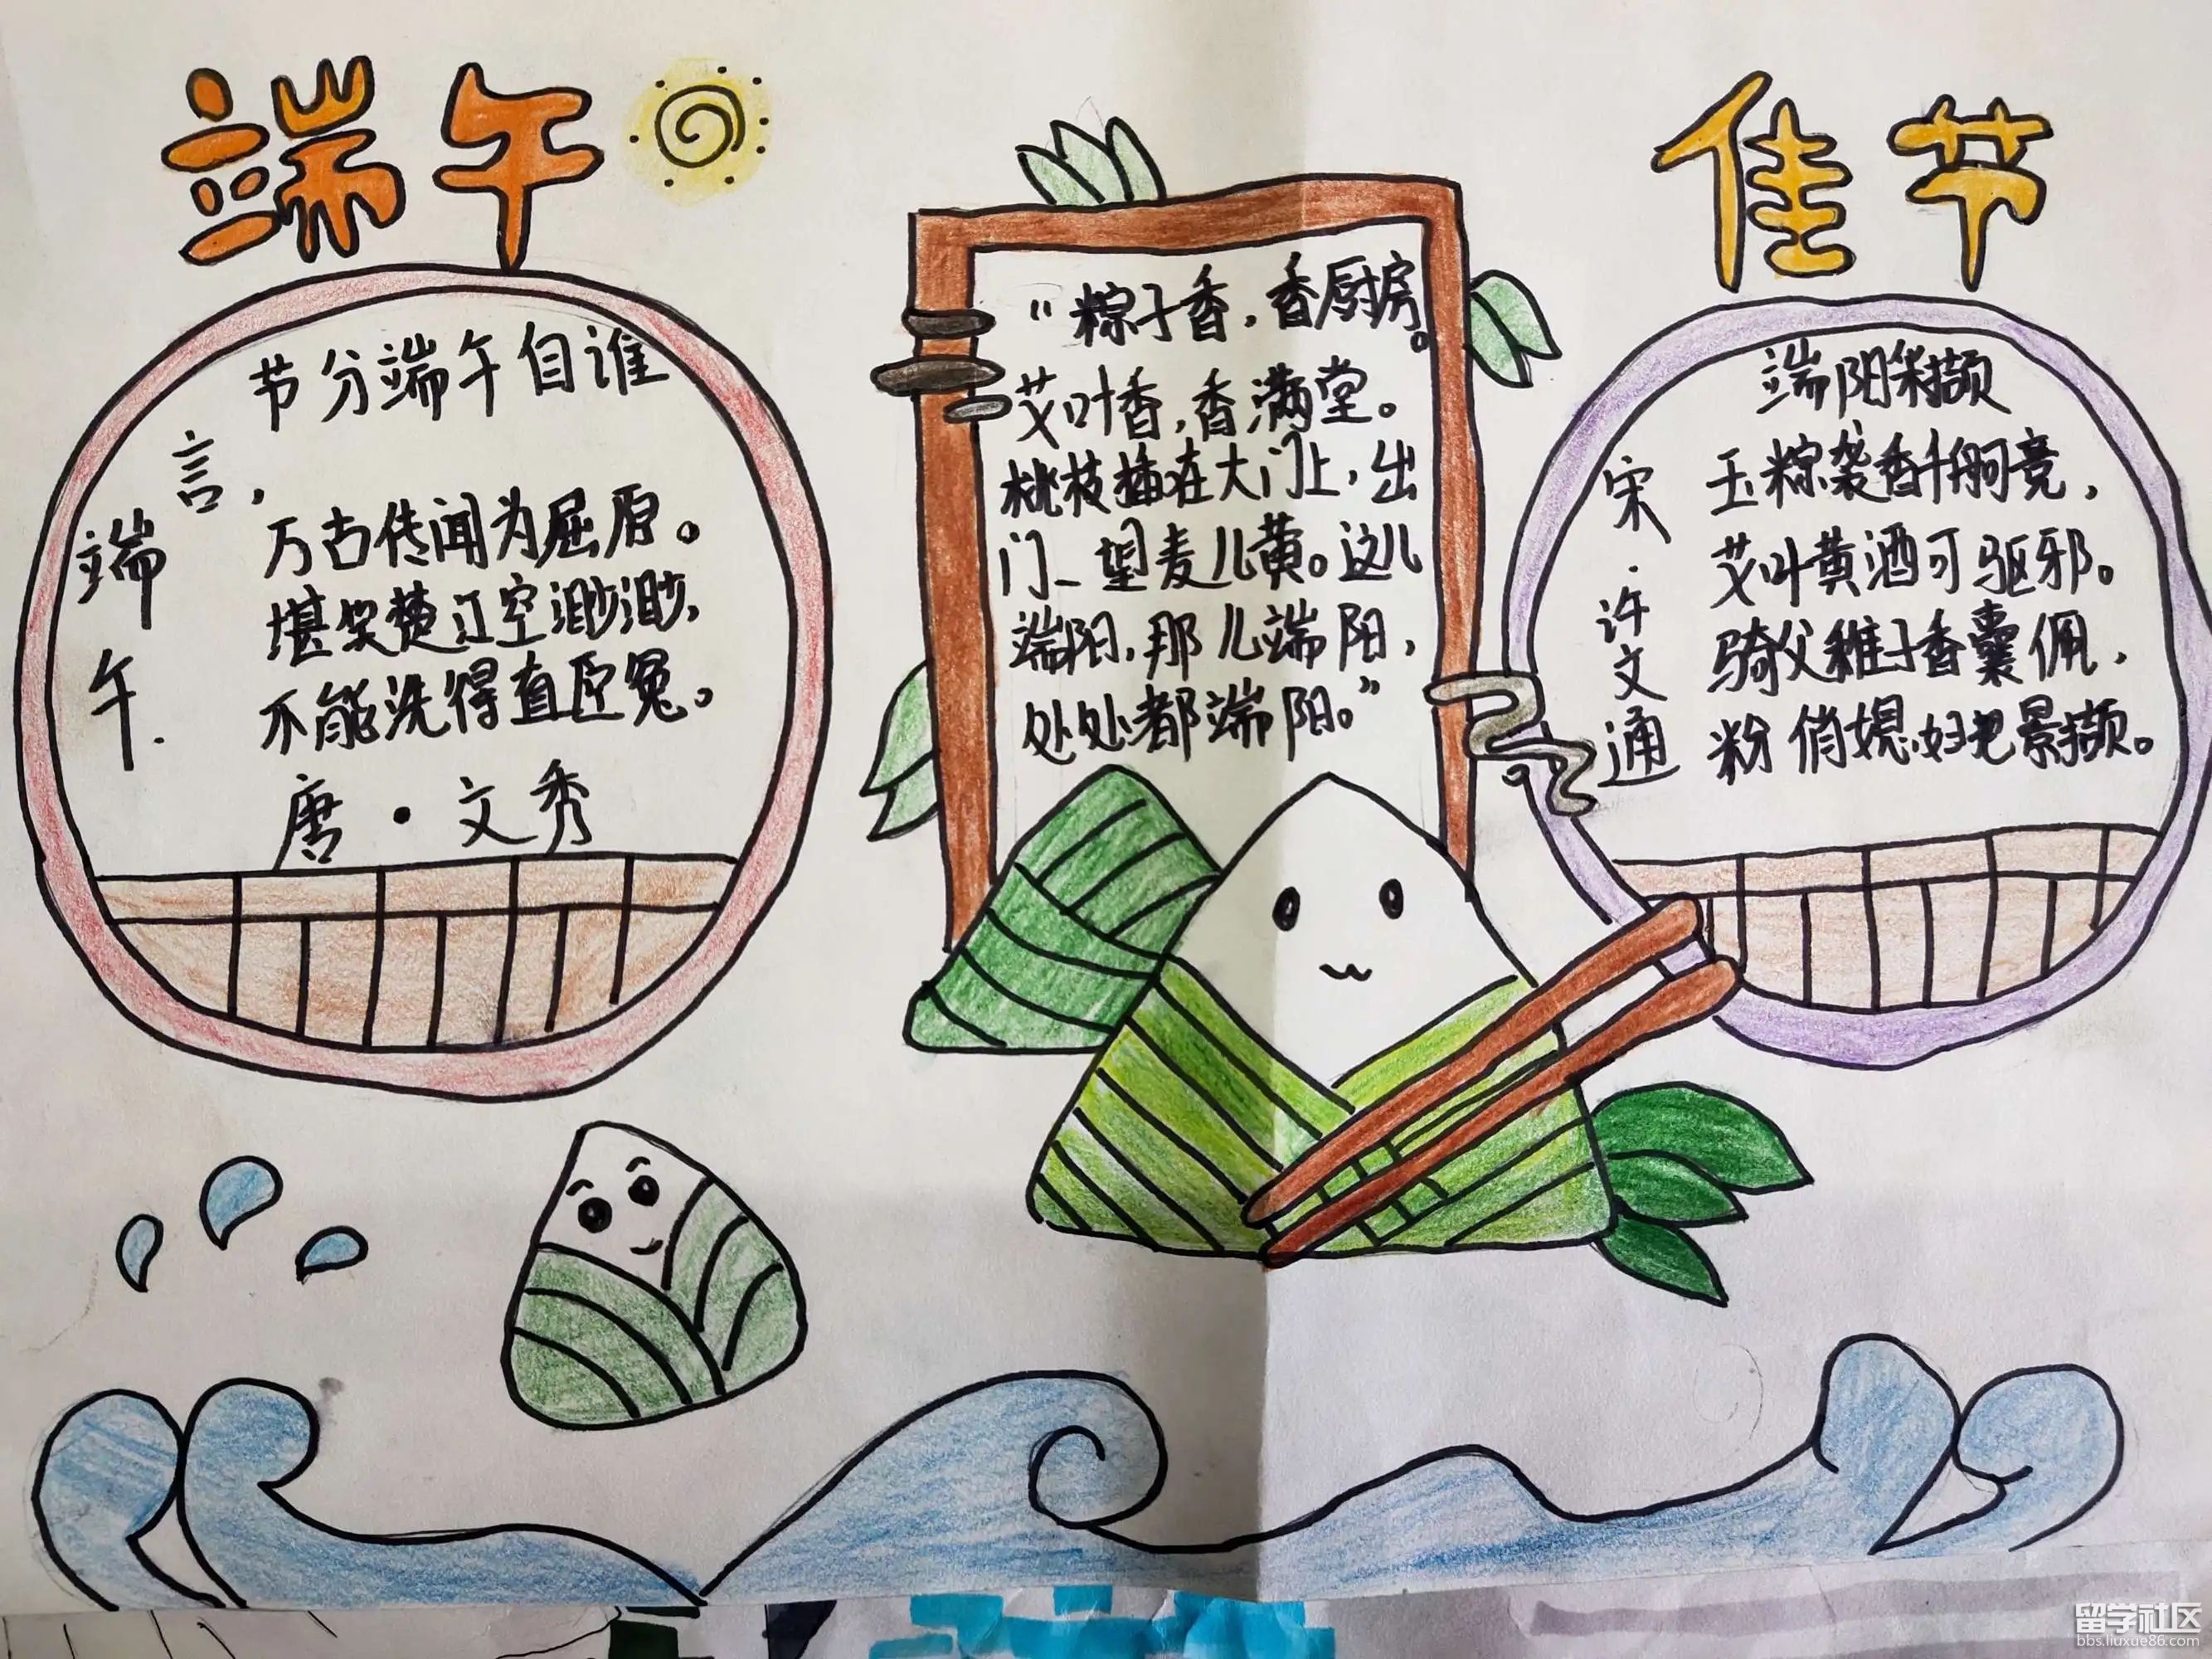 端午
佳节
端午
节分端午自谁
言，
万古传闻为屈原。
堪笑楚江空渺渺，
不能洗得直臣冤。
唐·文秀
"粽子香，香厨房。
艾叶香，香满堂。
桃枝插在大门上，出
门一望麦儿黄。这儿
端阳，那儿端阳，
处处都端阳。"
端阳采撷
宋·许文通
玉粽袭香千舸竞，
艾叶黄酒可驱邪。
骑父稚子香囊佩，
粉俏媳妇把景撷。
留学社区
bbs.liuxue86.com